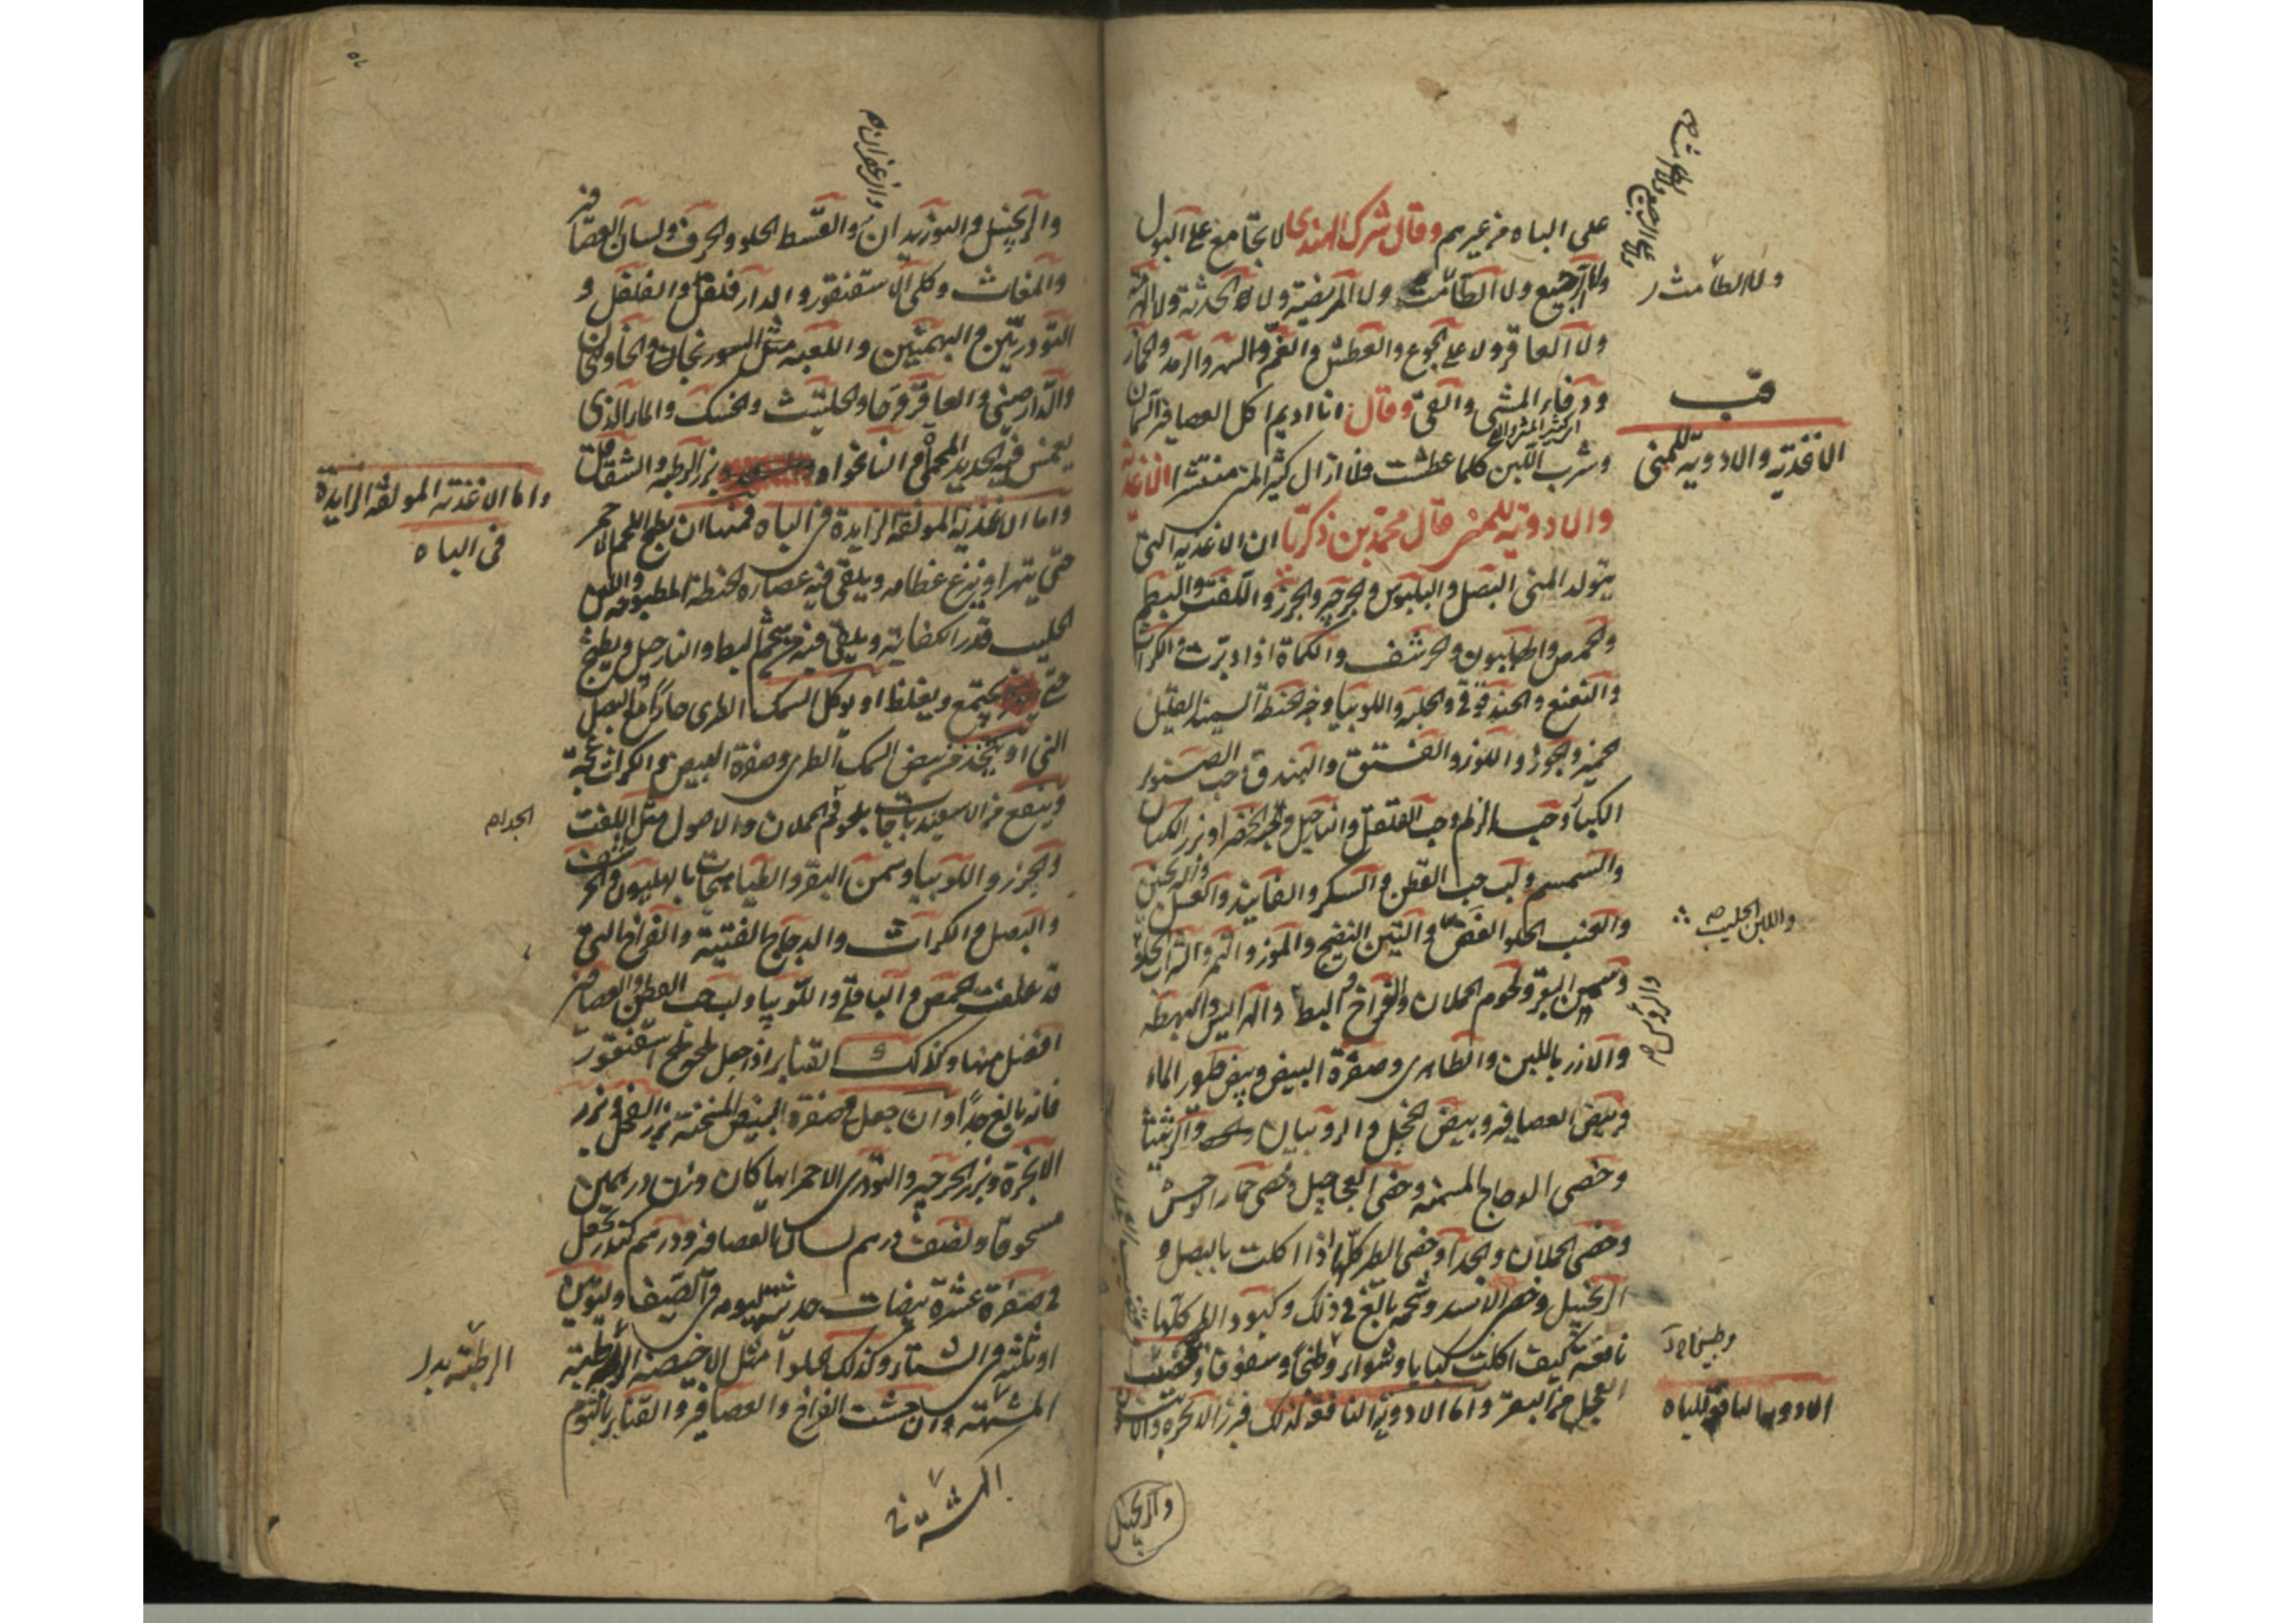 على الباه من غيرهم وقال شرك الهندي لا تجامع على البول
ولا الرجيع ولا الطامث ولا المريضة ولا الحدثة ولا الهرمة
ولا العاقر ولا على الجوع والعطش والغم والسهر والرمد والخمار
ودفاء المشي والقيء وقال انا اديم اكل العصافير السمان
وشرب اللبن كلما عطشت فلا ازال كثير المني منتشرا الاغذية
والادوية للمني قال محمد بن زكريا ان الاغذية التي
يتولد المني البصل والبلبوس والجرجير والجزر واللفت والبطم
والحمص والهليون والحرشف والكماة اذا دبرت والكراث
والنعنع والحندقوقى والحلبة واللوبيا وخبز الحنطة السميذ القليل
الخمير والجوز واللوز والفستق والبندق وحب الصنوبر
الكبار وحب الزلم وحب الفلفل والنارجيل والحبة الخضرا وبزر الكتان
والسمسم ولب حب القطن والسكر والفانيذ والعسل والترنجبين
والعنب الحلو الغض والتين النضيج والموز والتمر والشراب الحلو
وسمين البقر ولحوم الحملان والفراخ والبط والهرايس والبهطة
والارز باللبن والطاهرى وصفرة البيض وبيض طيور الماء
وبيض العصافير وبيض الحجل والروبيان والربيثا
وخصى الدجاج المسمنة وخصى العجاجيل وخصى حمار الوحش
وخصى الحملان والجدا وخصى الطير كلها اذا اكلت بالبصل و
الزنجبيل وخصى الاسد وشحمه بالغ في ذلك وكبود الطير كلها
نافعة كيف اكلت كبابا وشواء وطبخا وسفوفا وقضيب
العجل من البقر واما الادوية النافعة لذلك فبزر الانجرة والا
والزنجبيل
ولا الطامث
قب
الاغذية والادوية للمني
واللبن الحليب صح
والروس صح
وطبيخا
الادوية النافعة للباه
والزنجبيل والبوزيدان والقسط الحلو والحرف ولسان العصافير
والزعفران
والمغاث وكلى الاسقنقور والدارفلفل والفلفل و
التودريين والبهمنين واللعبة مثل السورنجان والخاولنجان
والدارصيني والعاقرقرحا والحلتيت والحسك والماء الذي
يغمس فيه الحديد المحمى والنانخواه وبزر الرطبة والشقاقل
واما الاغذية المولفة الزايدة في الباه فمنها ان يطبخ اللحم الاحمر
حتى يتهرا وينزع عظامه ويلقى فيه عصارة الحنطة المطبوخة واللبن
الحليب قدر الكفاية ويلقى فيه من شحم البط والنارجيل ويطبخ
حتى يجتمع ويغلظ او يوكل السمك الطري حارا مع البصل
الني او يتخذ من بيض السمك الطري وصفرة البيض والكراث عجة
وينفع من الاسفيذباجات بلحوم الحملان والاصول مثل اللفت
والجزر واللوبيا وسمن البقر والطباهيجات بالهليون والحرشف
والبصل والكراث والدجاج الفتية والفراخ التي
قد علفت الحمص والباقلى واللوبيا ولب حب القطن والعصافير
افضل منها وكذلك القنابر اذا جعل ملحها ملح اسقنقور
فانه بالغ جدا وان جعل في صفرة البيض المسخنة بزر الفجل وبزر
الانجرة وبزر الجرجير والتودري الاحمر ايها كان وزن درهمين
مسحوقا ونصف درهم لسان العصافير ودرهم كندر يجعل
في صفرة عشرة بيضات حديثة ليومه في الصيف وليومين
او ثلثة في الشتاء وكذلك الحلوا مثل الاخبصة الرطبة
المشبهة وان حشيت الفراخ والعصافير والقنابر بالثوم
واما الاغذية المولفة الزايدة
في الباه
الجدا صح
الرطبة بدل